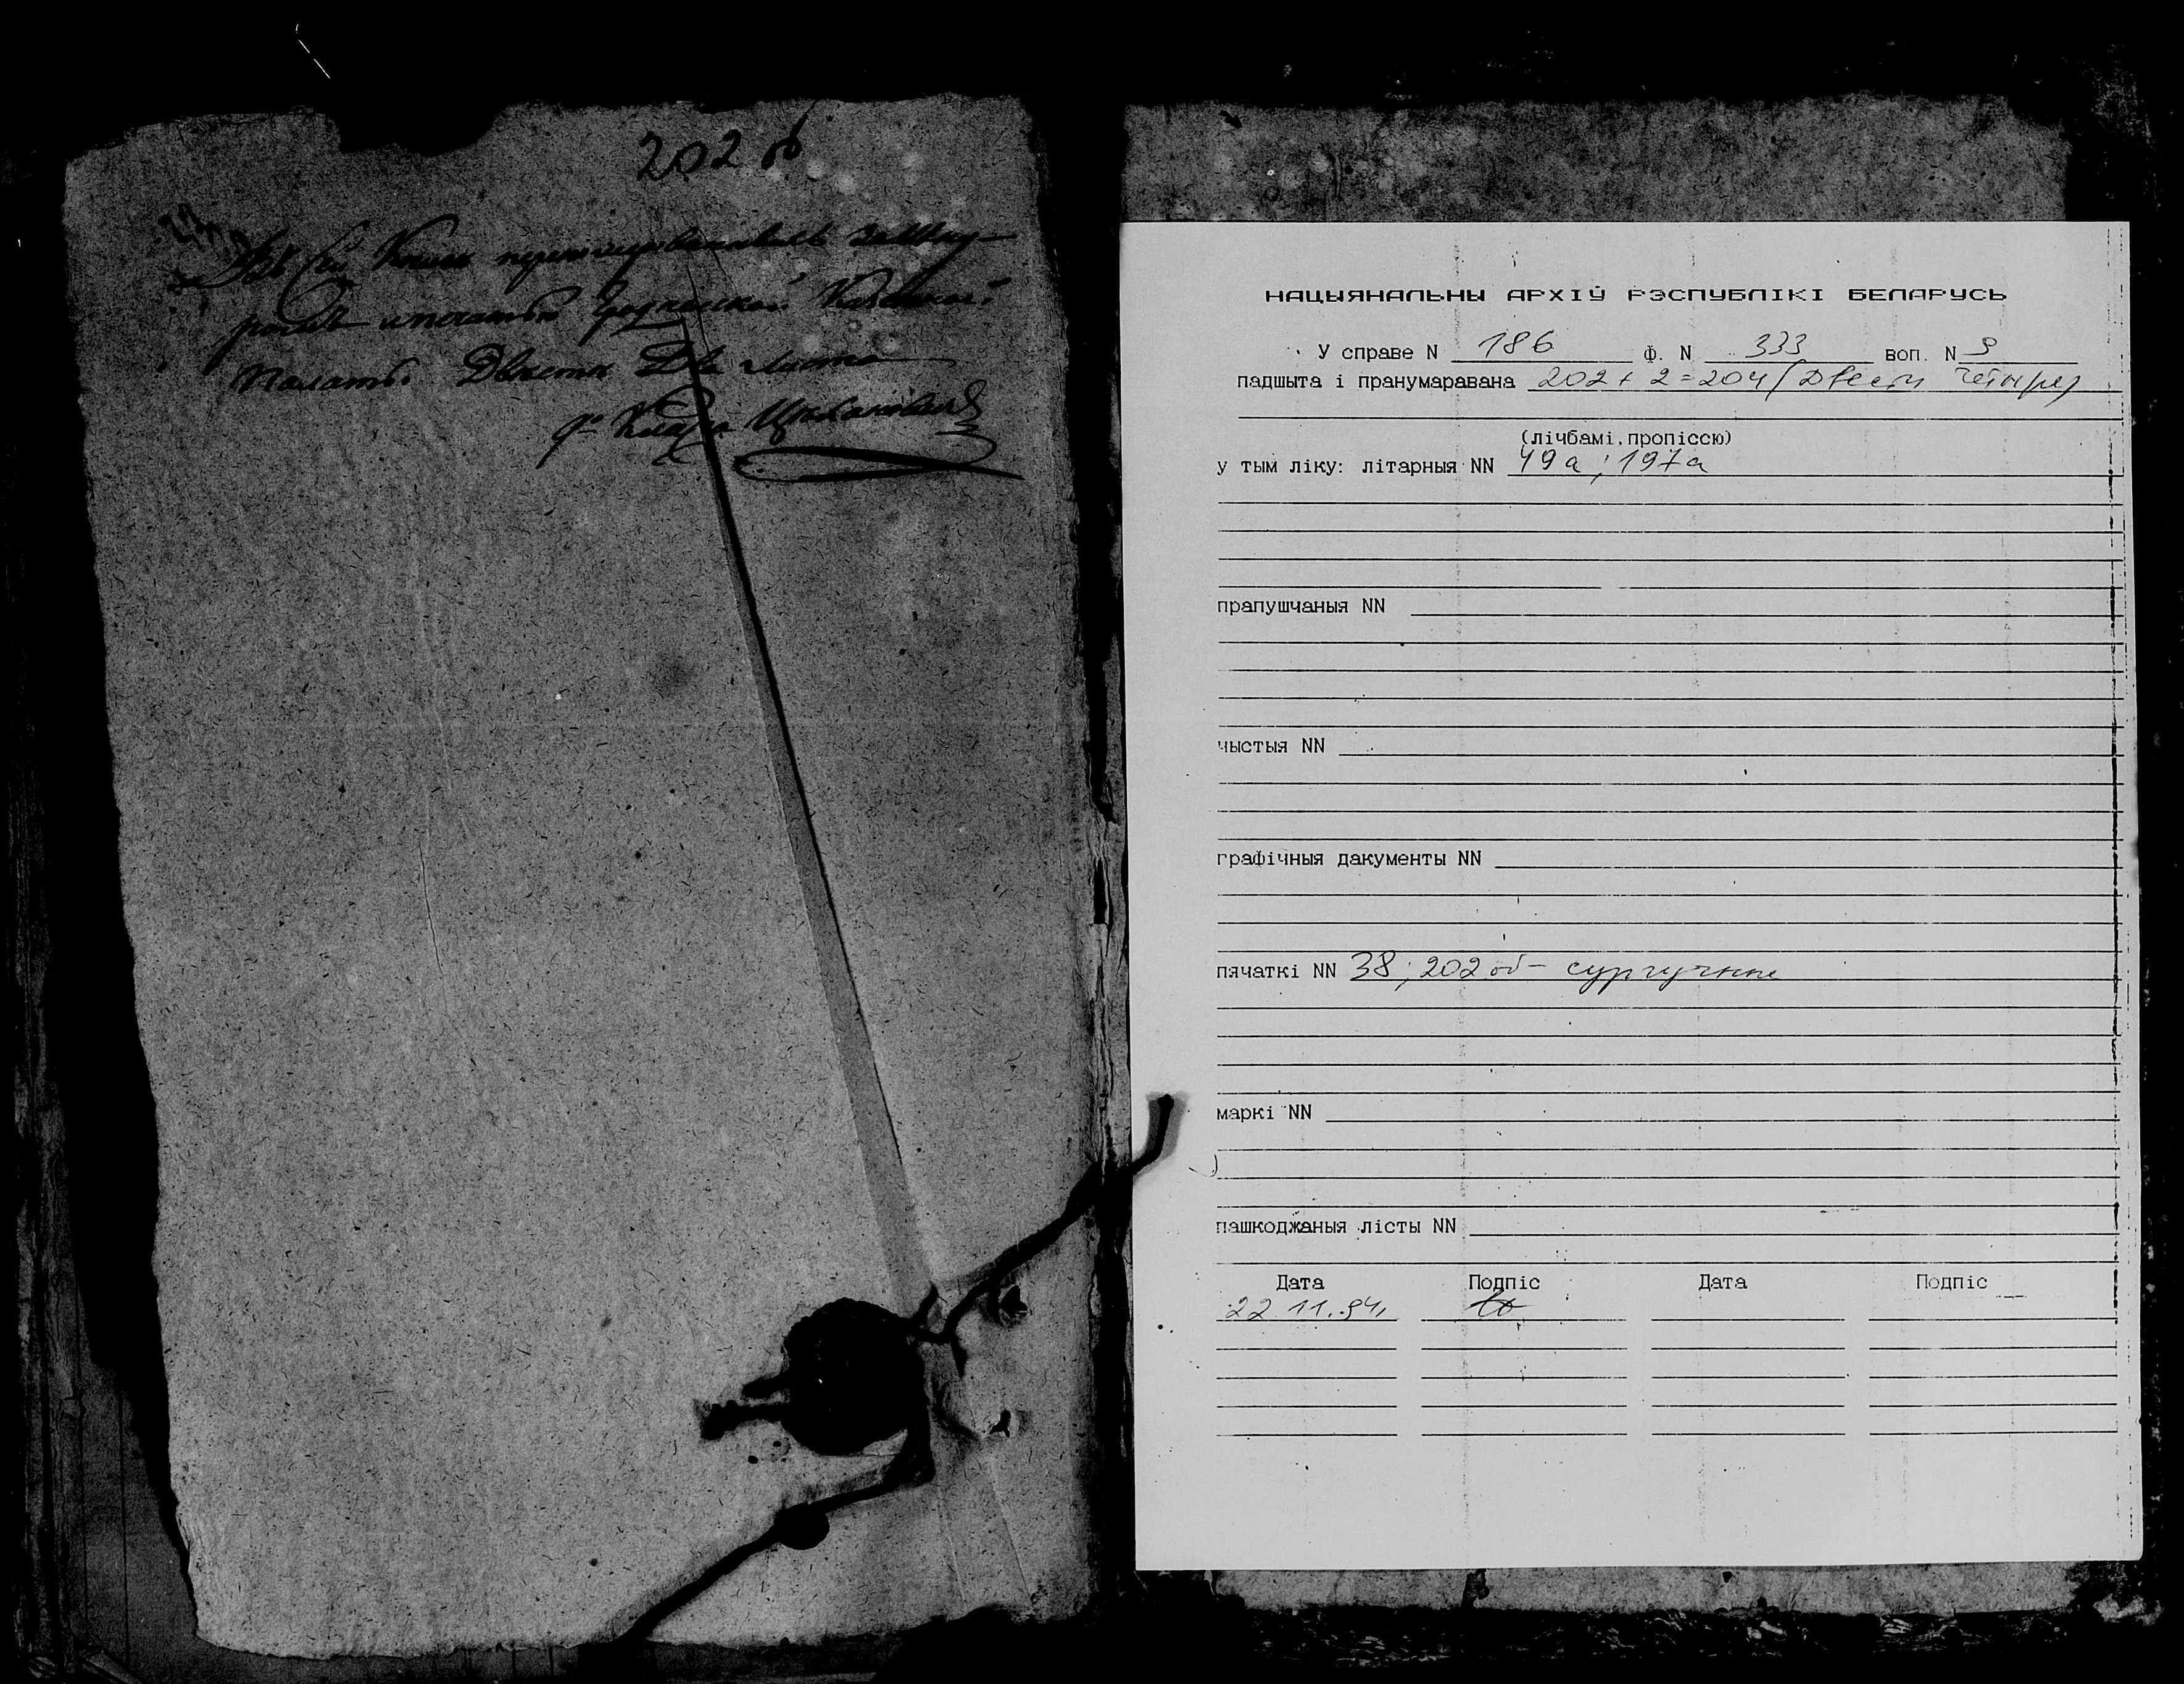 202 об
Въ сей Книге пронумерованныхъ зашну-
рованныхъ и печатью Гродненской Казенной
Палаты Двести Два листа
НАЦЫЯНАЛЬНЫ АРХІЎ РЭСПУБЛІКІ БЕЛАРУСЬ
У справе N 186 Ф. N 333 воп. N 9
падшыта і пранумаравана 202 + 2 = 204 (Двести четыре)
(лічбамі, пропіссю)
у тым ліку: літарныя NN 49а; 197а
прапушчаныя NN
чыстыя NN
графічныя дакументы NN
пячаткі NN 38; 202 об - сургучные
маркі NN
пашкоджаныя лісты NN
Дата Подпіс Дата Подпіс
22.11.94.